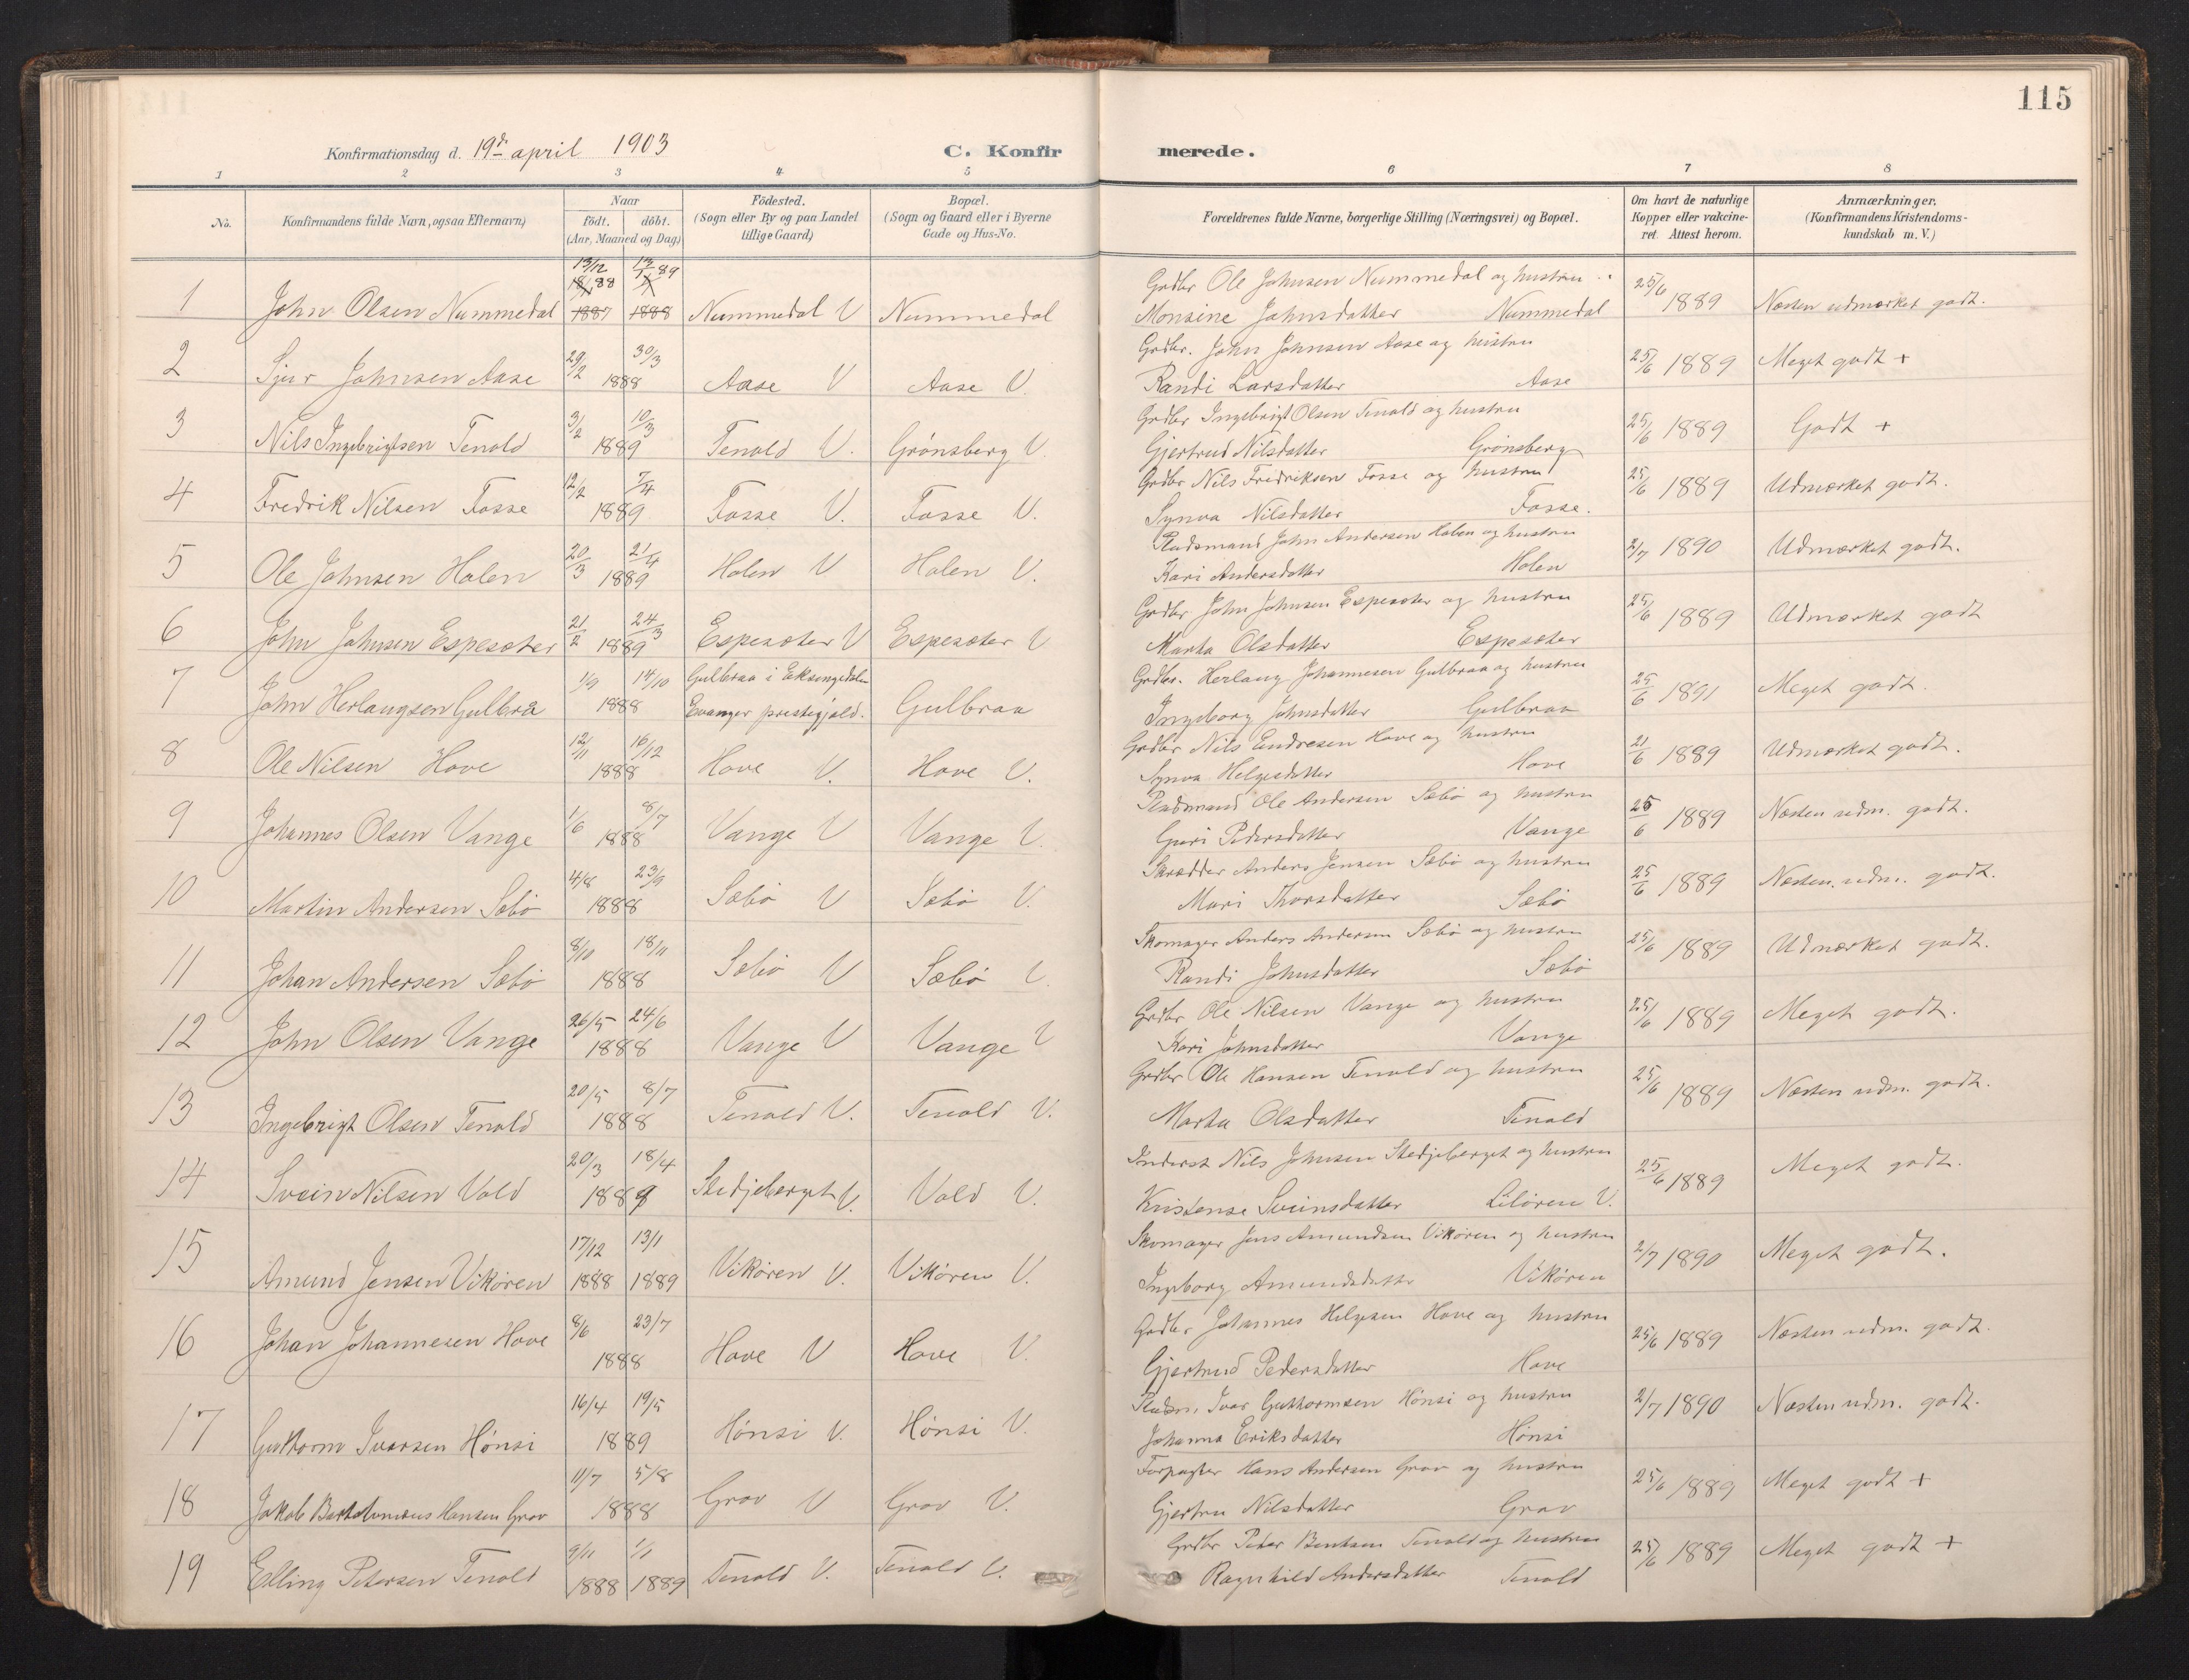 115
Konfirmationsdag d. 19de april 1903
C. Konfirmerede.
1 2 3 4 5 6 7 8
No.
Konfirmandens fulde Navn, ogsaa Efternavn)
Naar
födt. döbt.
(Aar, Maaned og Dag)
Födested.
(Sogn eller By og paa Landet
tillige Gaard)
Bopæl.
(Sogn og Gaard eller i Byerne
Gade og Hus-No.
Forældrenes fulde Navne, borgerlige Stilling (Næringsvei) og Bopæl.
Om havt de naturlige
Kopper eller vakcine-
ret. Attest herom.
Anmærkninger.
(Konfirmandens Kristendoms-
kundskab m. V.)
1 John Olsen Nummedal 13/12 88 13/1 89 1887 1888 Nummedal V Nummedal
Grdbr Ole Johnsen Nummedal og hustru
Monsine Johnsdatter Nummedal 25/6 1889 Næsten udmærket godt.
2 Sjur Johnsen Aase 29/2 30/3 1888 Aase V Aase V.
Grdbr. John Johnsen Aase og hustru
Randi Larsdatter Aase 25/6 1889 Meget godt +
3 Nils Ingebrigtsen Tenold 3/2 10/3 1889 Tenold V. Grönsberg V.
Grdbr Ingebrigt Olsen Tenold og hustru
Gjertrud Nilsdatter Grönsberg 25/6 1889 Godt +
4 Fredrik Nilsen Fosse 12/2 7/4 1889 Fosse V. Fosse V.
Grdbr Nils Fredriksen Fosse og hustru
Synva Nilsdatter Fosse. 25/6 1889 Udmærket godt.
5 Ole Johnsen Holen 20/3 21/4 1889 Holen V Holen V.
Pladsmand John Andersen Holen og hustru
Kari Andersdatter Holen 2/7 1890 Udmærket godt.
6 John Johnsen Espesæter 21/2 24/3 1889 Espesæter V Espesæter V
Grdbr. John Johnsen Espesæter og hustru
Marta Olsdatter Espesæter 25/6 1889 Udmærket godt
7 John Herlaugsen Gulbraa 1/9 14/10 1888 Gulbraa i Eksingedalen
Evanger prestegjæld. Gulbraa
Grdbr. Herlaug Johannesen Gulbraa og hustru
Ingeborg Johnsdatter Gulbraa 25/6 1891 Meget godt.
8 Ole Nilsen Hove 12/11 16/12 1888 Hove V. Hove V.
Grdbr Nils Endresen Hove og hustru
Synva Helgesdatter Hove 21/6 1889 Udmærket godt.
9 Johannes Olsen Vange 1/6 8/7 1888 Vange V Vange V.
Pladsmand Ole Andersen Sæbö og hustru
Guri Pedersdatter Vange 25/6 1889 Næsten udm. godt.
10 Martin Andersen Sæbö 4/8 23/9 1888 Sæbö V Sæbö V.
Skrædder Anders Jensen Sæbö og hustru
Mari Thorsdatter Sæbö 25/6 1889 Næsten udm. godt.
11 Johan Andersen Sæbö 8/10 18/11 1888 Sæbö V Sæbö V
Skomager Anders Andersen Sæbö og hustru
Randi Johnsdatter Sæbö 25/6 1889 Udmærket godt.
12 John Olsen Vange 26/5 24/6 1888 Vange V Vange V
Grdbr Ole Nilsen Vange og hustru
Kari Johnsdatter Vange 25/6 1889 Meget godt.
13 Ingebrigt Olsen Tenold 20/5 8/7 1888 Tenold V. Tenold V.
Grdbr Ole Hansen Tenold og hustru
Marta Olsdatter Tenold 25/6 1889 Næsten udm. godt.
14 Svein Nilsen Vold 20/3 18/4 1889 Stedjeberget V. Vold V.
Inderst Nils Johnsen Stedjeberget og hustru
Kristense Sveinsdatter Liløren V. 25/6 1889 Meget godt.
15 Amund Jensen Vikören 17/12 13/1 1888 1889 Vikören V. Vikören V.
Skomager Jens Amundsen Vikören og hustru
Ingeborg Amundsdatter Vikören 2/7 1890 Meget godt.
16 Johan Johannesen Hove 8/6 23/7 1888 Hove V Hove V.
Grdbr Johannes Helgesen Hove og hustru
Gjertrud Pedersdatter Hove 25/6 1889 Næsten udm. godt.
17 Guttorm Ivarsen Hönsi 16/4 19/5 1889 Hönsi V. Hönsi V.
Pladsm. Ivar Guttormsen Hönsi og hustru
Johanna Eriksdatter Hönsi 2/7 1890 Næsten udm. godt.
18 Jakob Bartolomæus Hansen Grov 11/7 5/8 1888 Grov V Grov V.
Forpagter Hans Andersen Grov og hustru
Gjertru Nilsdatter Grov 25/6 1889 Meget godt +
19 Elling Petersen Tenold 9/11 1/1 1888 1889 Tenold V. Tenold V.
Grdbr Peter Bentsen Tenold og hustru
Ragnhild Andersdatter Tenold 25/6 1889 Meget godt +